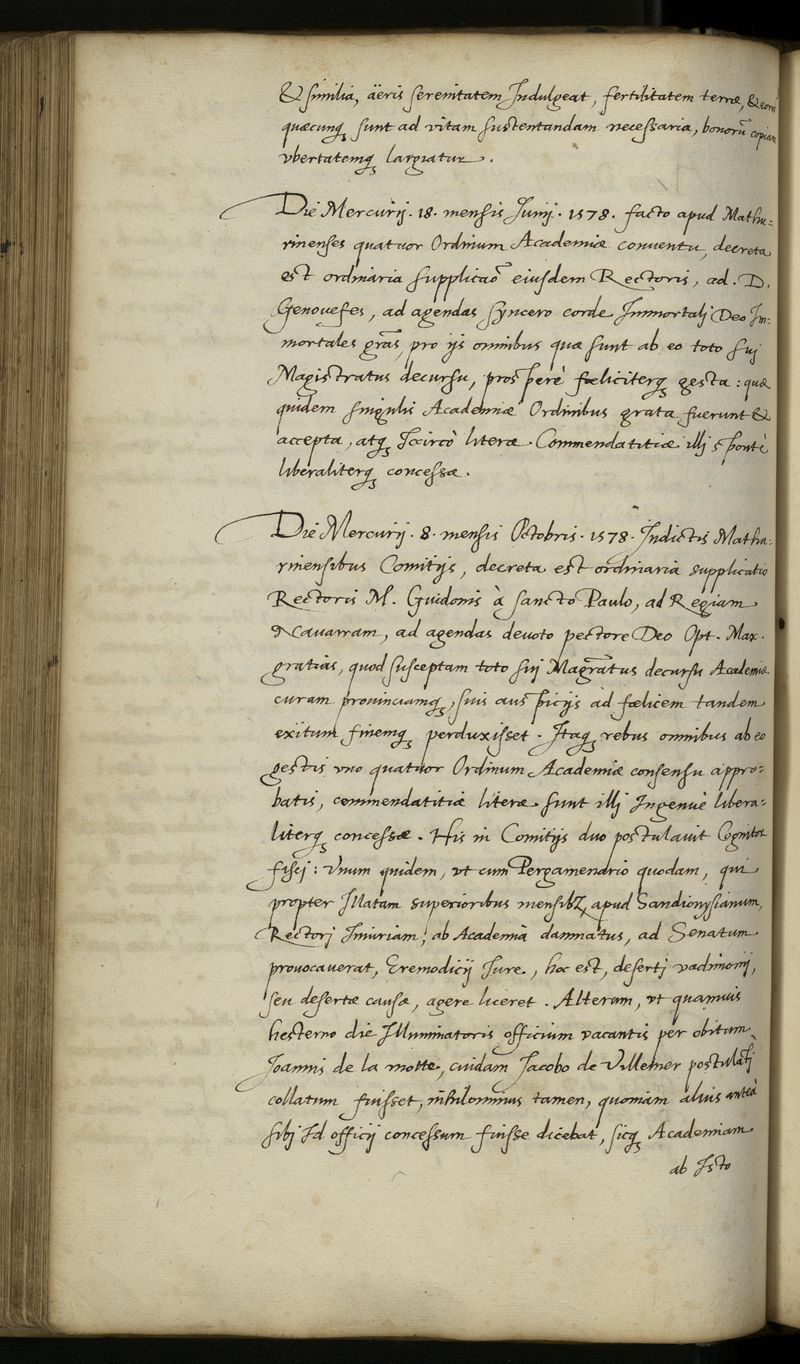 & similia, aëris serenitatem Indulgeat, fertilitatem terræ, &
quæcunq sunt ad vitam sustentandam necessaria, bonorū copiam
vbertatemq largiatur.
Die Mercurij. 18. mensis Junij. 1578. facto apud Mathu=
rinenses quatuor Ordinum Academiæ conuentu, decreta
est ordinaria supplicaō eiusdem Rectoris, ad. D.
Genouefes, ad agendas syncero corde Immortalj Deo Im=
mortales grās, pro ijs omnibus quæ sunt ab eo toto suj
Magistratus decursu, prosperè fœliciterq gesta : quæ
quidem singulis Academiæ Ordinibus grata fuerunt &
accepta, atq Iccircò literæ Commendatitiæ illj spontè
liberaliterq concessæ.
Die Mercurij. 8. mensis Octobris. 1578. Indictis Mathu=
rinensibus Comitijs, decreta est ordinaria supplicatio
Rectoris M. Guidonis à sancto Paulo, ad Regiam
Nauarram, ad agendas deuoto pectore Deo Opt. Max.
gratias, quod susceptam toto suj Magrātus decursu Academiæ
curam prouinciamq, suis auspicijs ad fœlicem tandem
exitum finemq perduxisset. Itaq rebus omnibus ab eo
gestis vno quatuor Ordinum Academiæ consensu appro=
batis, commendatitiæ literæ sunt illj Ingenuè libera=
literq concessæ. His in Comitijs duo postulauit Cognitor
fiscj : Vnum quidem, vt cum Pergamenario quodam, qui
propter Illatam superioribus mensibz, apud Sandionysianum,
Rectorj Iniuriam, ab Academia damnatus, ad Senatum
prouocauerat, Eremodicij Iure, hoc est, desertj vadimonij,
seu desertæ causæ, agere liceret. Alterum, vt quamuis
hesterno die Illuminatoris officium vacantis per obitum
Joannis de la motte, cuidam Jacobo de Villemer postulātj
collatum fuisset, nihilominus tamen, quoniam aliuis anteà
sibj Id officij concessum fuisse dicebat, sicq Academiam
ab Isto